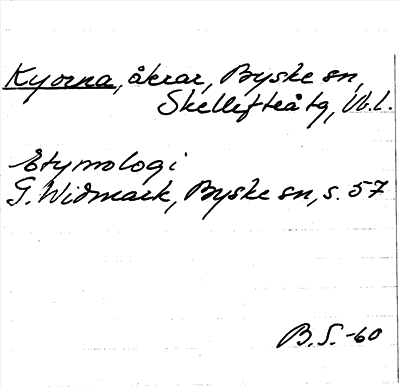 Kyorna, åkrar, Byske sn,
Skellefteå tg, Vb. L.
Etymologi
G. Widmark, Byske sn, s. 57
B. S. -60